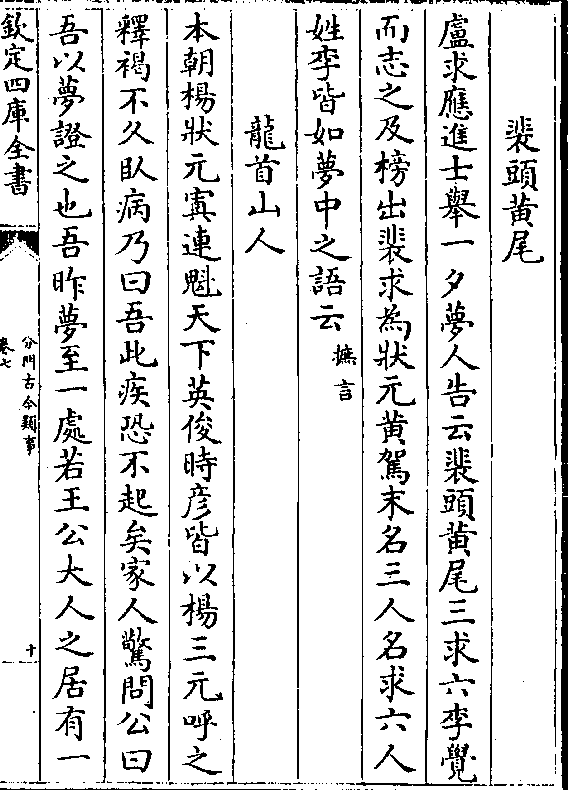 裴頭黄尾
盧求應進士舉一夕夢人告云裴頭黄尾三求六李覺
而志之及榜出裴求為狀元黄駕末名三人名求六人
姓李皆如夢中之語云摭言
龍首山人
本朝楊狀元寘連魁天下英俊時彦皆以楊三元呼之
釋褐不久臥病乃曰吾此疾恐不起矣家人驚問公曰
吾以夢證之也吾昨夢至一處若王公大人之居有一
欽定四庫全書
分門古今類事
卷七
十